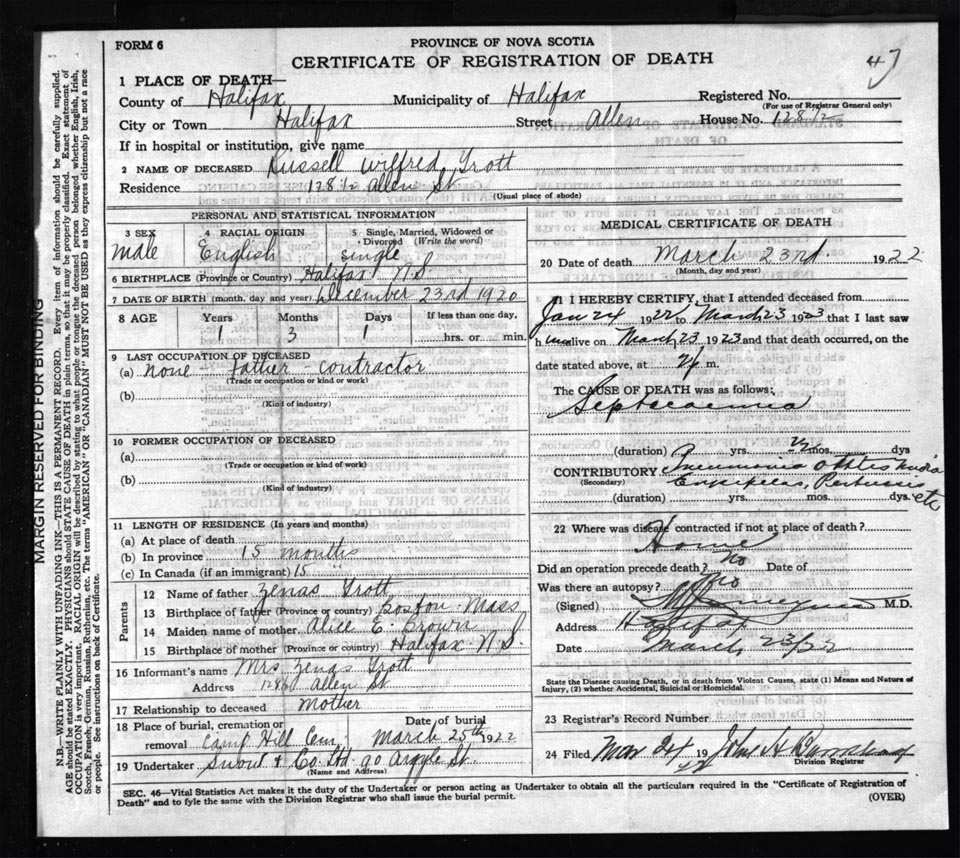 FORM 6
PROVINCE OF NOVA SCOTIA
CERTIFICATE OF REGISTRATION OF DEATH
47
1 PLACE OF DEATH—
County of Halifax Municipality of Halifax Registered No.
(For use of Registrar General only)
City or Town Halifax Street Allen House No. 128½
If in hospital or institution, give name
2 NAME OF DECEASED Russell Wilfred Trott
Residence 128½ Allen St
(Usual place of abode)
PERSONAL AND STATISTICAL INFORMATION
3 SEX 4 RACIAL ORIGIN 5 Single, Married, Widowed or Divorced (Write the word)
male English single
6 BIRTHPLACE (Province or Country) Halifax N.S.
7 DATE OF BIRTH (month, day and year) December 23rd 1920
8 AGE Years Months Days If less than one day,
1 3 1 hrs. or min.
9 LAST OCCUPATION OF DECEASED
(a) none - father - contractor
(Trade or occupation or kind or work)
(b)
(Kind of industry)
10 FORMER OCCUPATION OF DECEASED
(a)
(Trade or occupation or kind of work)
(b)
(Kind of industry)
11 LENGTH OF RESIDENCE (In years and months)
(a) At place of death
(b) In province 15 months
(c) In Canada (if an immigrant) 15 "
Parents
12 Name of father Zenas Trott
13 Birthplace of father (Province or country) Boston Mass
14 Maiden name of mother Alice E. Brown
15 Birthplace of mother (Province or country) Halifax N.S.
16 Informant's name Mrs Zenas Trott
Address Allen St
17 Relationship to deceased Mother
18 Place of burial, cremation or removal Camp Hill Cem. Date of burial March 25th 1922
19 Undertaker Snow & Co. Ltd. 90 Argyle St.
(Name and Address)
MEDICAL CERTIFICATE OF DEATH
20 Date of death March 23rd 1922
(Month, day and year)
21 I HEREBY CERTIFY, that I attended deceased from
Jan 24 1922 to March 23 1923 that I last saw
h im alive on March 23 1923 and that death occurred, on the
date stated above, at m.
The CAUSE OF DEATH was as follows:
Septicaemia
(duration) yrs. mos. dys
CONTRIBUTORY Pneumonia Otitis Media
(Secondary) Erysipelas, Pertussis etc
(duration) yrs. mos. dys.
22 Where was disease contracted if not at place of death?
Home
Did an operation precede death? No Date of
Was there an autopsy? No
(Signed) M.D.
Address Halifax
Date March 23/22
State the Disease causing Death, or in death from Violent Causes, state (1) Means and Nature of
Injury, (2) whether Accidental, Suicidal or Homicidal.
23 Registrar's Record Number
24 Filed Mar 24 19 22 John A
Division Registrar
SEC. 46—Vital Statistics Act makes it the duty of the Undertaker or person acting as Undertaker to obtain all the particulars required in the "Certificate of Registration of
Death" and to fyle the same with the Division Registrar who shall issue the burial permit.
(OVER)
MARGIN RESERVED FOR BINDING
N.B.—WRITE PLAINLY WITH UNFADING INK.—THIS IS A PERMANENT RECORD. Every item of information should be carefully supplied.
AGE should be stated EXACTLY. PHYSICIANS should state CAUSE OF DEATH in plain terms, so that it may be properly classified. Exact statement of
OCCUPATION is very important. RACIAL ORIGIN will be described by stating to what people or tongue the deceased person belonged whether English, Irish,
Scotch, French, German, Russian, Ruthenian, etc. The terms "AMERICAN" OR "CANADIAN" MUST NOT BE USED as they express citizenship but not a race
or people. See instructions on back of Certificate.